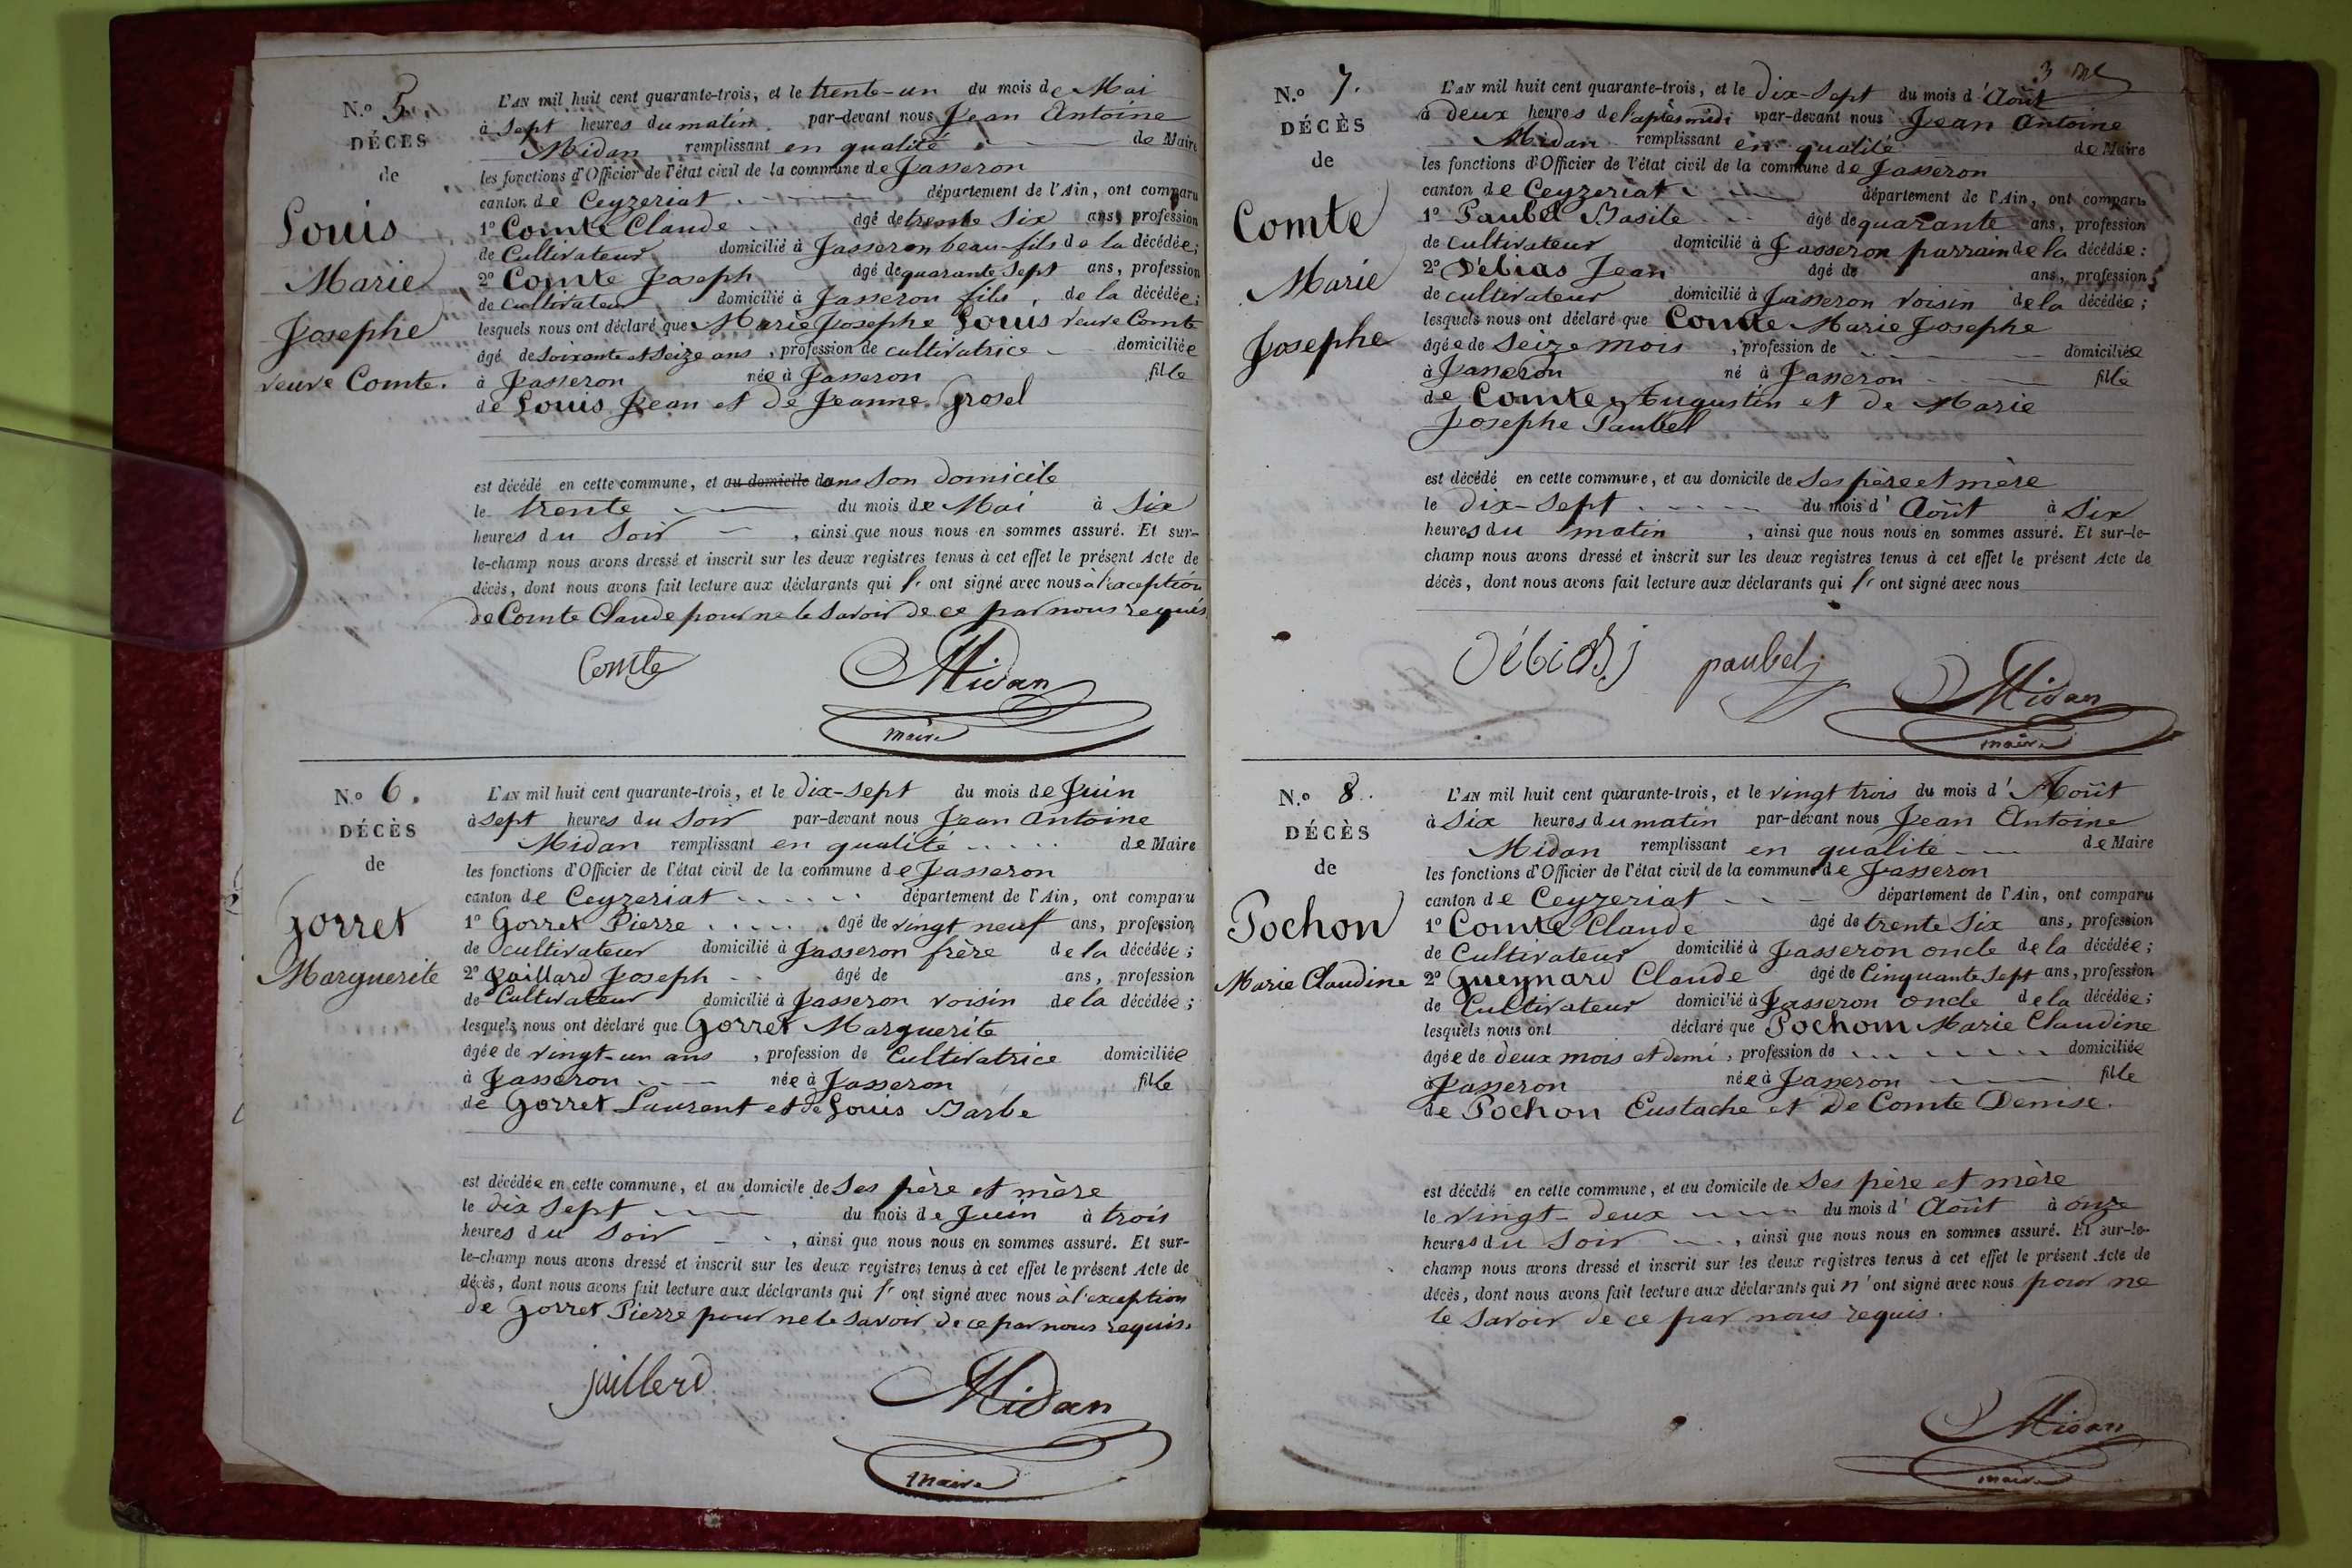 N.o 5.
DÉCÈS
de
Louis
Marie
Josephe
veuve Comte.
L'AN mil huit cent quarante-trois, et le trente-un du mois de Mai
à sept heures du matin par-devant nous Jean Antoine
Midan remplissant en qualité de Maire
les fonctions d'Officier de l'état civil de la commune de Jasseron
canton de Ceyzeriat département de l'Ain, ont comparu
1o Comte Claude âgé de trente six ans, profession
de Cultivateur domicilié à Jasseron beau-fils de la décédée;
2o Comte Joseph âgé de quarante sept ans, profession
de cultivateur domicilié à Jasseron fils, de la décédée;
lesquels nous ont déclaré que Marie Josephe Louis veuve Comte
âgé de soixante et seize ans, profession de cultivatrice domiciliée
à Jasseron née à Jasseron fille
de Louis Jean et de Jeanne Grosel
est décédé en cette commune, et au domicile dans son domicile
le trente du mois de Mai à six
heures du soir, ainsi que nous nous en sommes assuré. Et sur-
le-champ nous avons dressé et inscrit sur les deux registres tenus à cet effet le présent Acte de
décès, dont nous avons fait lecture aux déclarants qui l' ont signé avec nous à l'exception
de Comte Claude pour ne le savoir de ce par nous requis.
Comte
Midan
maire
N.o 6.
DÉCÈS
de
Gorret
Marguerite
L'AN mil huit cent quarante-trois, et le dix-sept du mois de Juin
à sept heures du soir par-devant nous Jean Antoine
Midan remplissant en qualité de Maire
les fonctions d'Officier de l'état civil de la commune de Jasseron
canton de Ceyzeriat département de l'Ain, ont comparu
1o Gorret Pierre âgé de vingt neuf ans, profession
de cultivateur domicilié à Jasseron frère de la décédée;
2o Jaillard Joseph âgé de ans, profession
de Cultivateur domicilié à Jasseron voisin de la décédée;
lesquels nous ont déclaré que Gorret Marguerite
âgée de vingt-un ans, profession de Cultivatrice domiciliée
à Jasseron née à Jasseron fille
de Gorret Laurent et de Louis Barbe
est décédée en cette commune, et au domicile de ses père et mère
le dix sept du mois de Juin à trois
heures du soir, ainsi que nous nous en sommes assuré. Et sur-
le-champ nous avons dressé et inscrit sur les deux registres tenus à cet effet le présent Acte de
décès, dont nous avons fait lecture aux déclarants qui l' ont signé avec nous à l'exception
de Gorret Pierre pour ne le savoir de ce par nous requis.
jaillerd
Midan
maire
3
N.o 7.
DÉCÈS
de
Comte
Marie
Josephe
L'AN mil huit cent quarante-trois, et le dix-sept du mois d'Août
à deux heures de l'après midi par-devant nous Jean Antoine
Midan remplissant en qualité de Maire
les fonctions d'Officier de l'état civil de la commune de Jasseron
canton de Ceyzeriat département de l'Ain, ont comparu
1o Paubel Basile âgé de quarante ans, profession
de cultivateur domicilié à Jasseron parrain de la décédée:
2o Débias Jean âgé de ans, profession
de cultivateur domicilié à Jasseron voisin de la décédée;
lesquels nous ont déclaré que Comte Marie Josephe
âgée de seize mois, profession de domiciliée
à Jasseron né à Jasseron fille
de Comte Augustin et de Marie
Josephe Paubel
est décédé en cette commune, et au domicile de ses père et mère
le dix-sept du mois d'Août à six
heures du matin, ainsi que nous nous en sommes assuré. Et sur-le-
champ nous avons dressé et inscrit sur les deux registres tenus à cet effet le présent Acte de
décès, dont nous avons fait lecture aux déclarants qui l' ont signé avec nous
paubel
Midan
maire
N.o 8.
DÉCÈS
de
Pochon
Marie Claudine
L'AN mil huit cent quarante-trois, et le vingt trois du mois d'Août
à six heures du matin par-devant nous Jean Antoine
Midan remplissant en qualité de Maire
les fonctions d'Officier de l'état civil de la commune de Jasseron
canton de Ceyzeriat département de l'Ain, ont comparu
1o Comte Claude âgé de trente six ans, profession
de Cultivateur domicilié à Jasseron oncle de la décédée;
2o Gueynard Claude âgé de Cinquante sept ans, profession
de Cultivateur domicilié à Jasseron oncle de la décédée;
lesquels nous ont déclaré que Pochon Marie Claudine
âgée de deux mois et demi, profession de domiciliée
à Jasseron née à Jasseron fille
de Pochon Eustache et de Comte Denise.
est décédé en cette commune, et au domicile de ses père et mère
le vingt-deux du mois d'Août à onze
heures du soir, ainsi que nous nous en sommes assuré. Et sur-le-
champ nous avons dressé et inscrit sur les deux registres tenus à cet effet le présent Acte de
décès, dont nous avons fait lecture aux déclarants qui n'ont signé avec nous pour ne
le savoir de ce par nous requis.
Midan
maire